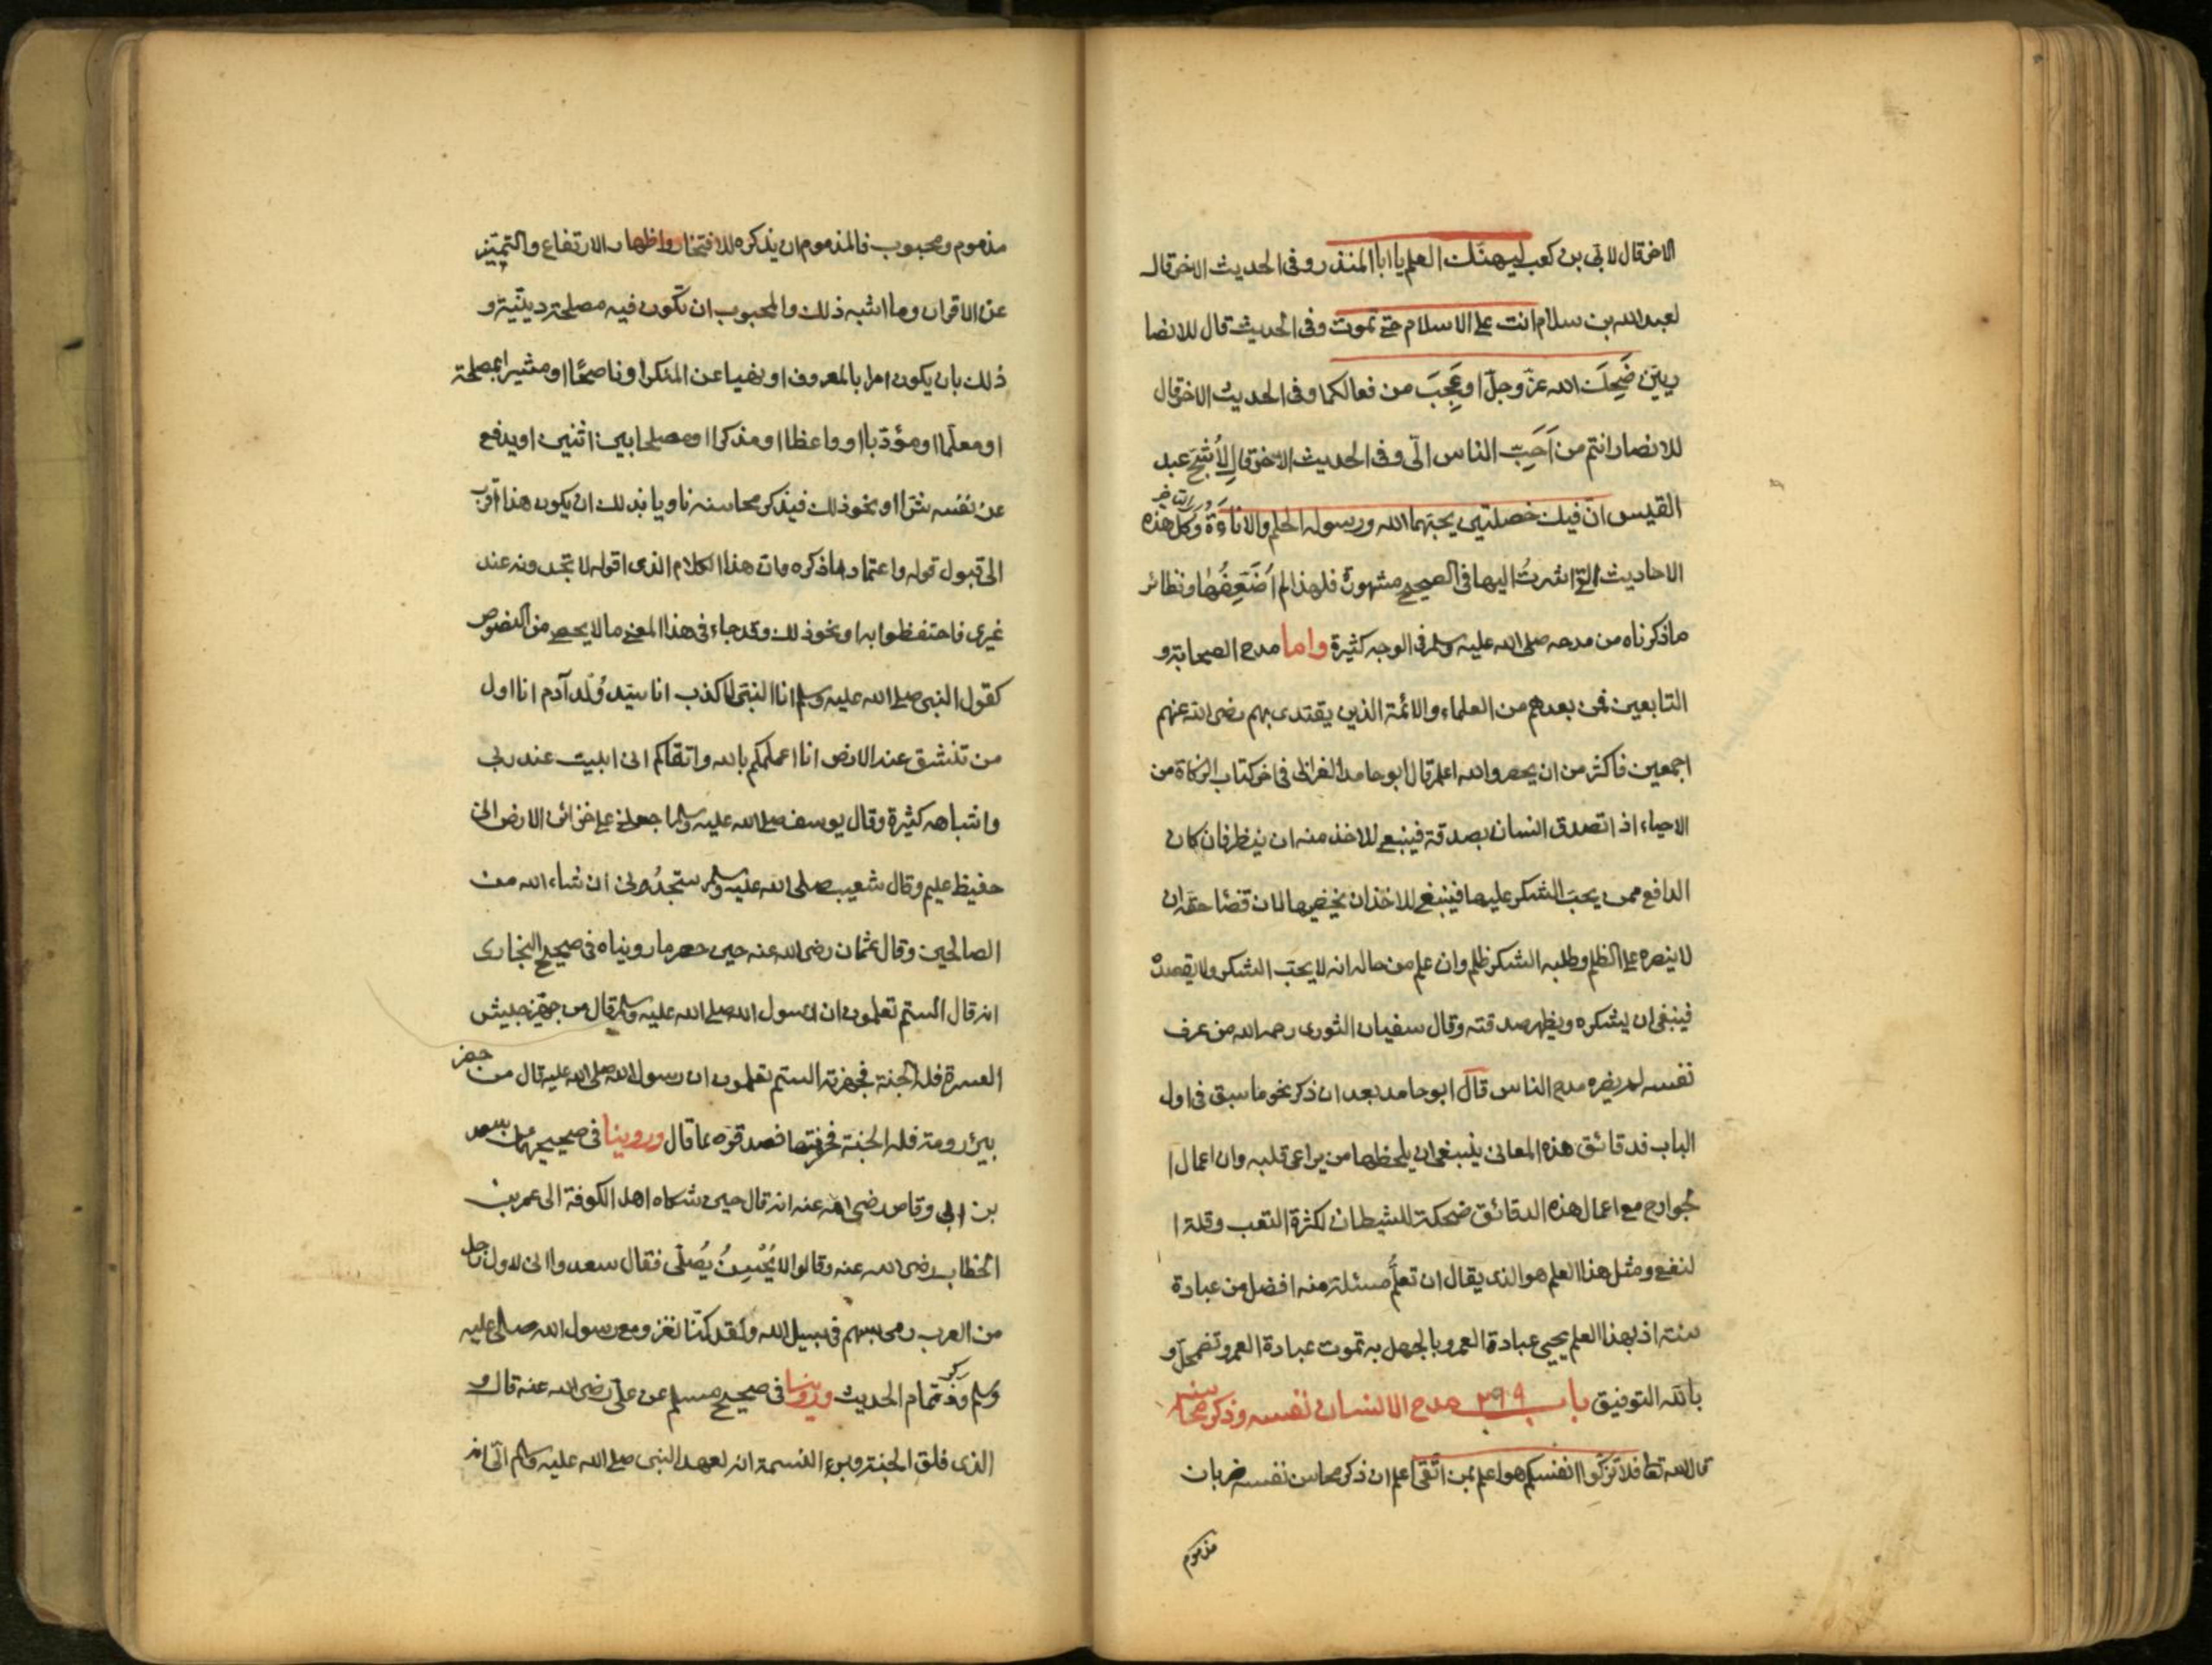 الاخر قال لابي بن كعب ليهنك العلم يا ابا المنذر وفى الحديث الاخر قال
لعبد الله بن سلام انت على الاسلام حتى تموت وفى الحديث قال للانصا
ريين ضَحِكَ الله عزّ وجلّ او عَجِبَ من فعالكما وفى الحديث الاخر قال
للانصار انتم من اَحَبّ الناس الىّ وفى الحديث الاخر قال لاَشَجّ عبد
القيس انّ فيك خصلتين يحبهما الله ورسوله الحلم والاناءة وَكلّ هذه
الاحاديث التى اشرتُ اليها فى الصحيح مشهورة فلهذا لم اُضَعِفُها ونظائر
ماذكرناه من مدحه صلى الله عليه وسلم فى الوجه كثيرة واما مدح الصحابة و
التابعين فمن بعدهم من العلماء والائمة الذين يقتدى بهم رضى الله عنهم
اجمعين فاكثر من ان يحصر والله اعلم قال ابو حامد الغزالى فى اخر كتاب الزكاة من
الاحياء اذا تصدق انسان بصدقة فينبغى للاخذ منه ان ينظر فان كان
الدافع ممن يحبّ الشكر عليها فينبغى للاخذ ان يخفيها لان قضا حقه ان
لا ينصره على الظلم وطلبه الشكر ظلم وان علم من حاله انه لا يحبّ الشكر ولا يقصده
فينبغى ان يشكره ويظهر صدقته وقال سفيان الثورى رحمه الله من عرف
نفسه لم يضره مدح الناس قال ابو حامد بعد ان ذكر نحو ما سبق فى اول
الباب فدقائق هذه المعانى ينبغى ان يلحظها من يراعى قلبه وان اعمال ا
لجوارح مع اعمال هذه الدقائق ضحكة للشيطان لكثرة التعب وقلة ا
لنفع ومثل هذا العلم هو الذى يقال ان تعلّم مسئلة منه افضل من عبادة
سنة اذ بهذا العلم يحيى عبادة العمر وبالجهل به تموت عبادة العمر وتضمحلّ و
بالله التوفيق باب ٢٩٩ مدح الانسان نفسه وذكر محاسنه
قال الله تعا فلا تزكّوا انفسكم هو اعلم بمن اتّقى اعلم ان ذكر محاسن نفسه ضربان
مذموم
مذموم ومحبوب فالمذموم ان يذكره للافتخار واظهار الارتفاع والتميّز
عن الاقران وما اشبه ذلك والمحبوب ان تكون فيه مصلحة دينيّة و
ذلك بان يكون امرا بالمعروف او نهيا عن المنكر او ناصحًا او مشيرا بمصلحة
او معلّما او مؤدّبا او واعظا او مذكرا او مصلحا بين اثنين او يدفع
عن نفسه شرّا او نحو ذلك فيذكر محاسنه ناويا بذلك ان يكون هذا اقرب
الى قبول قوله واعتماد ما ذكره وان هذا الكلام الذى اقوله لا تجدونه عند
غيرى فاحتفظوا به او نحو ذلك وقد جاء فى هذا المعنى ما لا يحصر من النصوص
كقول النبى صلى الله عليه وسلم انا النبىّ لا كذب انا سيّد وُلد آدم انا اول
من تنشق عنه الارض انا اعملكم بالله واتقاكم انى ابيت عند ربى
واشباهه كثيرة وقال يوسف صلى الله عليه وسلم اجعلنى على خزائن الارض انى
حفيظ عليم وقال شعيب صلى الله عليه وسلم ستجدُنى ان شاء الله من
الصالحين وقال عثمان رضى الله عنه حين حصر ما روينا ه فى صحيح البخارى
انه قال الستم تعلمون ان رسول الله صلى الله عليه وسلم قال من جهّز جيش
العسرة فله الجنة فجهزته الستم تعلمون ان رسول الله صلى الله عليه قال من حفر
بئر رومة فله الجنة فحفرتها فصدقوه بما قال وروينا فى صحيحيهما عن سعد
بن ابى وقاص رضى الله عنه انه قال حين شكاه اهل الكوفة الى عمر بن
الخطاب رضى الله عنه وقالوا لا يُحْسِنُ يُصلّى فقال سعد والله انى لاول رجل
من العرب رمى بسهم فى سبيل الله ولقد كنّا نغزو مع رسول الله صلى عليه
وسلم وذكر تمام الحديث وروينا فى صحيح مسلم عن علىّ رضى الله عنه قال و
الذى فلق الحبّة وبرء النسمة انه لعهد النبى صلى الله عليه وسلم الىّ انه